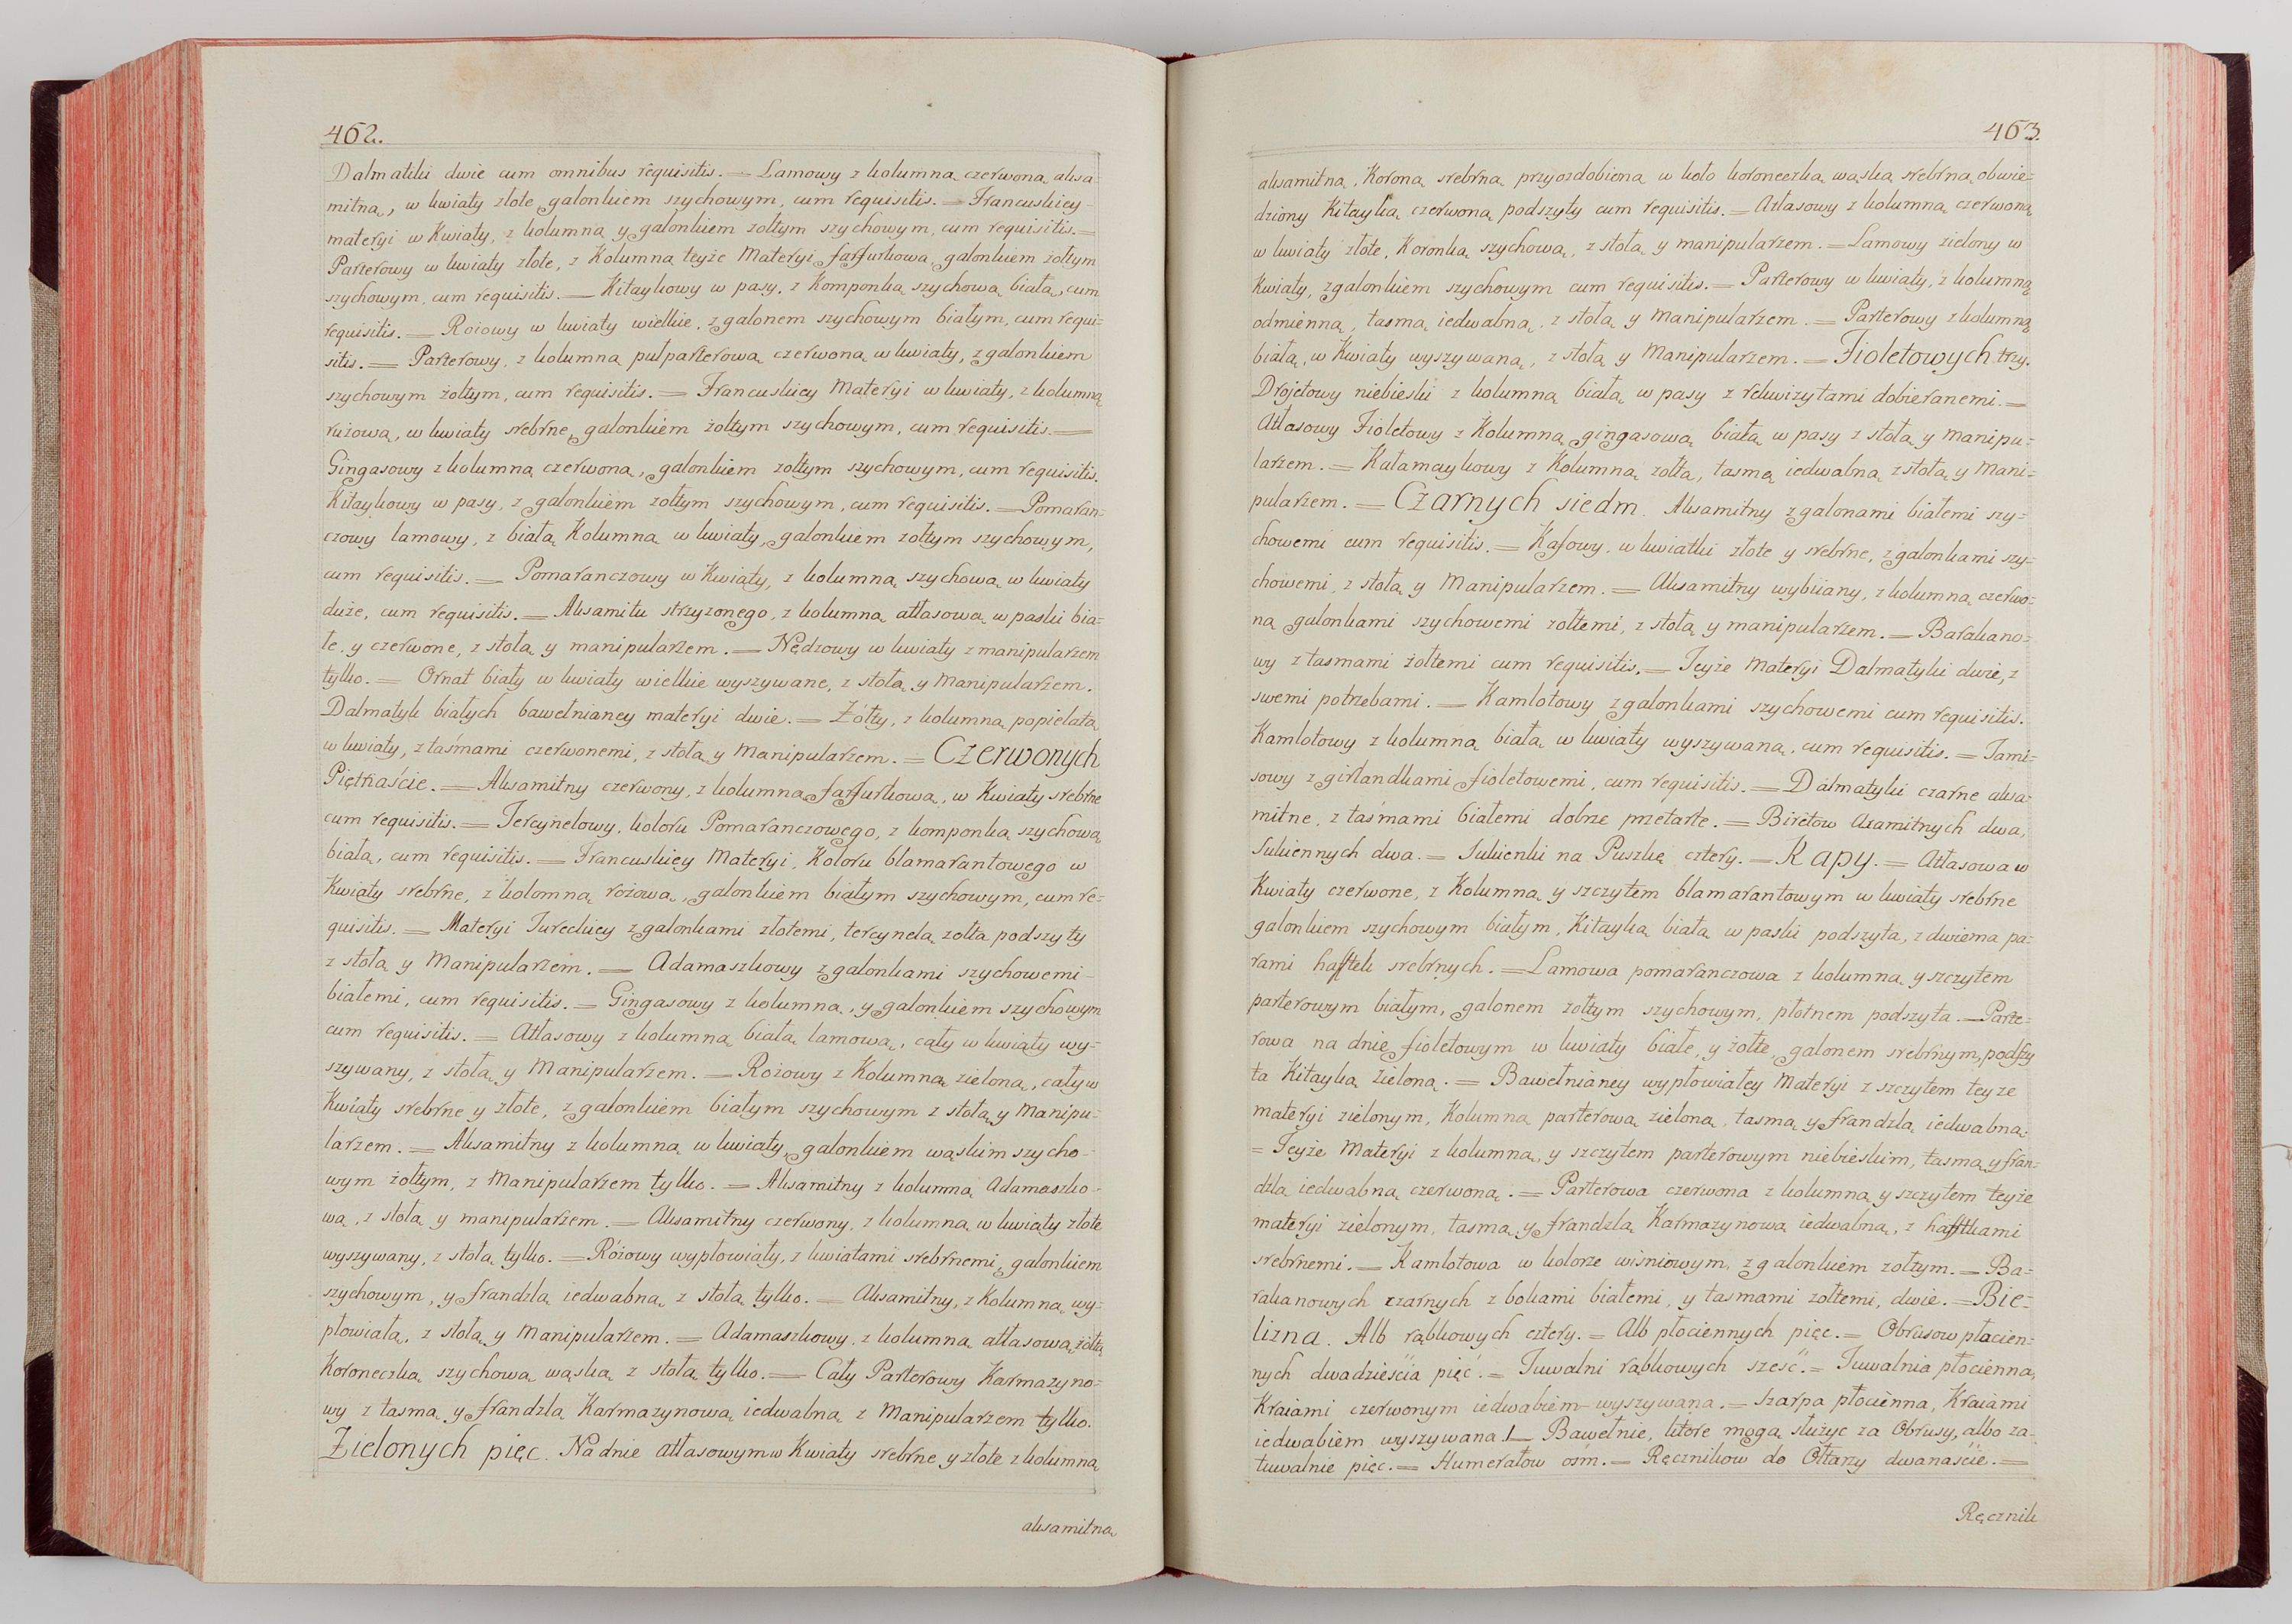 462.
Dalmatiki dwie cum omnibus requisitis. = Lamowy z kolumną czerwoną aksa-
mitną, w kwiaty złote galonkiem szychowym, cum requisitis. = Francuskiey
materyi w Kwiaty, z kolumną y galonkiem żołtym szychowym, cum requisitis. =
Parterowy w kwiaty złote, z Kolumną teyże Materyi farfurkową, galonkiem żołtym
szychowym, cum requisitis. = Kitaykowy w pasy, z Komponką szychową białą, cum
requisitis. = Rożowy w kwiaty wielkie, z galonem szychowym białym, cum requi-
sitis. = Parterowy, z kolumną pułparterową czerwoną w kwiaty, z galonkiem
szychowym żołtym, cum requisitis. = Francuskiey Materyi w kwiaty, z kolumną
rużową, w kwiaty srebrne, galonkiem żołtym szychowym, cum requisitis. =
Gingasowy z kolumną czerwoną, galonkiem żołtym szychowym, cum requisitis.
Kitaykowy w pasy, z galonkiem żołtym szychowym, cum requisitis. = Pomaran-
czowy lamowy, z białą Kolumną w kwiaty, galonkiem żołtym szychowym,
cum requisitis. = Pomaranczowy w Kwiaty, z kolumną szychową w kwiaty
duże, cum requisitis. = Aksamitu strzyżonego, z kolumną atłasową w paski bia-
łe, y czerwone, z stołą y manipularzem. = Nędzowy w kwiaty z manipularzem
tylko. = Ornat biały w kwiaty wielkie wyszywane, z stołą y Manipularzem.
Dalmatyk białych bawełnianey materyi dwie. = Żołty, z kolumną popielatą
w kwiaty, z taśmami czerwonemi, z stołą y Manipularzem. = Czerwonych
Piętnaście. = Aksamitny czerwony, z kolumną farfurkową, w Kwiaty srebrne
cum requisitis. = Tercynelowy, koloru Pomaranczowego, z komponką szychową
białą, cum requisitis. = Francuskiey Materyi, Koloru blamarantowego w
Kwiaty srebrne, z kolomną rożową, galonkiem białym szychowym, cum re-
quisitis. = Materyi Tureckiey z galonkami złotemi, tercynelą żołtą podszyty
z stołą y Manipularzem. = Adamaszkowy z galonkami szychowemi
białemi, cum requisitis. = Gingasowy z kolumną, y galonkiem szychowym
cum requisitis. = Atłasowy z kolumną białą lamową, cały w kwiaty wy-
szywany, z stołą y Manipularzem. = Rożowy z Kolumną zieloną, cały w
Kwiaty srebrne y złote, z galonkiem białym szychowym z stołą y Manipu-
larzem. = Aksamitny z kolumną w kwiaty, galonkiem wąskim szycho-
wym żołtym, z Manipularzem tylko. = Aksamitny z kolumną Adamaszko-
wą, z stołą y manipularzem. = Aksamitny czerwony, z kolumną w kwiaty złote
wyszywany, z stołą tylko. = Rożowy wypłowiały, z kwiatami srebrnemi, galonkiem
szychowym, y frandzlą iedwabną z stołą tylko. = Aksamitny, z Kolumną wy-
płowiałą, z stołą y Manipularzem. = Adamaszkowy, z kolumną atłasową, żołtą
Koroneczką szychową wąską z stołą tylko. = Cały Parterowy Karmazyno-
wy z tasmą y frandzlą Karmazynową iedwabną z Manipularzem tylko.
Zielonych pięc. Na dnie atłasowym w Kwiaty srebrne y złote z kolumną
aksamitną
463.
aksamitną, Koroną srebrną przyozdobiona w koło koroneczką wąską srebrną obwie-
dziony Kitayką czerwoną podszyty cum requisitis. = Atłasowy z kolumną czerwoną
w kwiaty złote, Koronką szychową, z stołą y manipularzem. = Lamowy zielony w
Kwiaty, z galonkiem szychowym cum requisitis. = Parterowy w kwiaty, z kolumną
odmienną, tasmą iedwabną, z stołą y Manipularzem. = Parterowy z kolumną
białą, w Kwiaty wyszywaną, z stołą y Manipularzem. = Fioletowych trzy.
Drojetowy niebieski z kolumną białą w pasy z rekwizytami dobieranemi. =
Atłasowy Fioletowy z Kolumną gingasową białą w pasy z stołą y Manipu-
larzem. = Kałamaykowy z Kolumną żołtą, tasmą iedwabną, z stołą y Mani-
pularzem. = Czarnych siedm. Aksamitny z galonami białemi szy-
chowemi cum requisitis. = Kafowy, w kwiatki złote y srebrne, z galonkami szy-
chowemi, z stołą y Manipularzem. = Aksamitny wybiiany, z kolumną czerwo-
ną galonkami szychowemi żołtemi, z stołą y manipularzem. = Barakano-
wy z tasmami żołtemi cum requisitis. = Teyże Materyi Dalmatyki dwie, z
swemi potrzebami. = Kamlotowy z galonkami szychowemi cum requisitis.
Kamlotowy z kolumną białą w kwiaty wyszywaną, cum requisitis. = Tami-
sowy z girlandkami fioletowemi, cum requisitis. = Dalmatyki czarne aksa-
mitne, z taśmami białemi dobrze przetarte. = Biretow Axamitnych dwa,
Sukiennych dwa. = Sukienki na Puszkę cztery. = Kapy. = Atłasowa w
Kwiaty czerwone, z Kolumną y szczytem blamarantowym w kwiaty srebrne
galonkiem szychowym białym, Kitayką białą w paski podszyta, z dwiema pa-
rami haftek srebrnych. = Lamowa pomaranczowa z kolumną y szczytem
parterowym białym, galonem żołtym szychowym, płotnem podszyta. = Parte-
rowa na dnie fioletowym w kwiaty białe, y żołte, galonem srebrnym, podszy
ta Kitayką zieloną. = Bawełnianey wypłowiałey Materyi z szczytem teyze
materyi zielonym, Kolumną parterową zieloną, tasmą y frandzlą iedwabną.
= Teyże Materyi z kolumną, y szczytem parterowym niebieskim, tasmą y fran-
dzlą iedwabną czerwoną. = Parterowa czerwona z kolumną y szczytem teyże
materyi zielonym, tasmą y frandzlą Karmazynową iedwabną, z hafftkami
srebrnemi. = Kamlotowa w kolorze wiśniowym, z galonkiem żołtym. = Ba-
rakanowych czarnych z bokami białemi, y tasmami żołtemi, dwie. = Bie-
lizna. Alb rąbkowych cztery. = Alb płociennych pięc. = Obrusow płacien-
nych dwadzieścia pięć. = Tuwalni rąbkowych sześć. = Tuwalnia płocienna,
Kraiami czerwonym iedwabiem wyszywana. = Szarpa płocienna, Kraiami
iedwabiem wyszywana 1. Bawełnie, ktore mogą służyc za Obrusy, albo za
tuwalnie pięc. = Humerałow ośm. = Ręcznikow do Ołtarzy dwanaście. =
Ręcznik